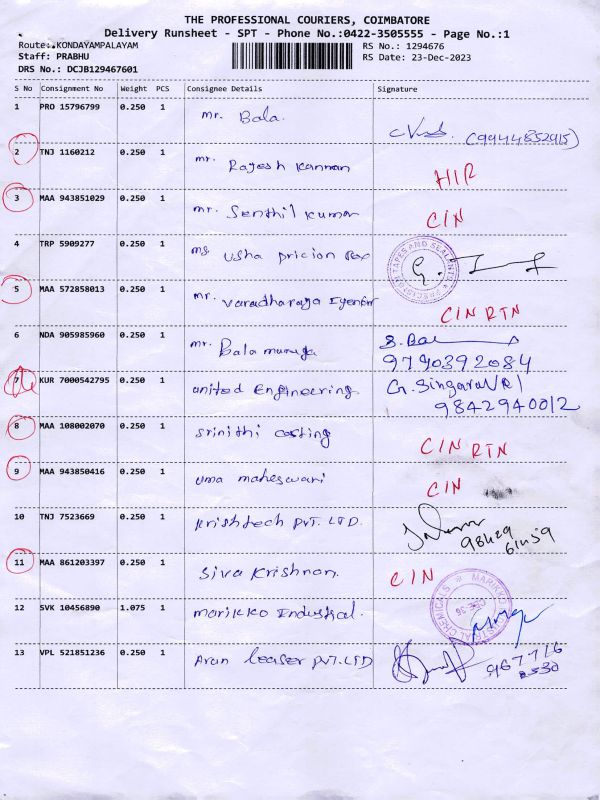 THE PROFESSIONAL COURIERS, COIMBATORE
Delivery Runsheet - SPT - Phone No.:0422-3505555 - Page No.:1
Route:.KONDAYAMPALAYAM
RS No.: 1294676
Staff: PRABHU
RS Date: 23-Dec-2023
DRS No.: DCJB129467601
S No Consignment No Weight PCS Consignee Details Signature
1 PRO 15796799 0.250 1 mr. Bala.
(9944852915)
2 TNJ 1160212 0.250 1 mr. Rajesh Kannan
3 MAA 943851029 0.250 1 mr. Senthil kumar CIN
4 TRP 5909277 0.250 1 ms usha pricion
TAPES AND SEALANTS
5 MAA 572858013 0.250 1 mr. Varadharaja CIN RTN
6 NDA 905985960 0.250 1 mr. Balamuruga S. Bal
9790392084
7 KUR 7000542795 0.250 1 united Engineering G. Singaravel
9842940012
8 MAA 108002070 0.250 1 srinithi casting CIN RTN
9 MAA 943850416 0.250 1 uma maheswari CIN
10 TNJ 7523669 0.250 1 krishtech PVT. LTD.
98429
61459
11 MAA 861203397 0.250 1 Siva Krishnan. CIN
12 SVK 10456890 1.075 1 marikko Industrial.
MARIKKO INDUSTRIAL CHEMICALS
CBE-36
13 VPL 521851236 0.250 1 Arun leaser PVT.LTD
967716
2530